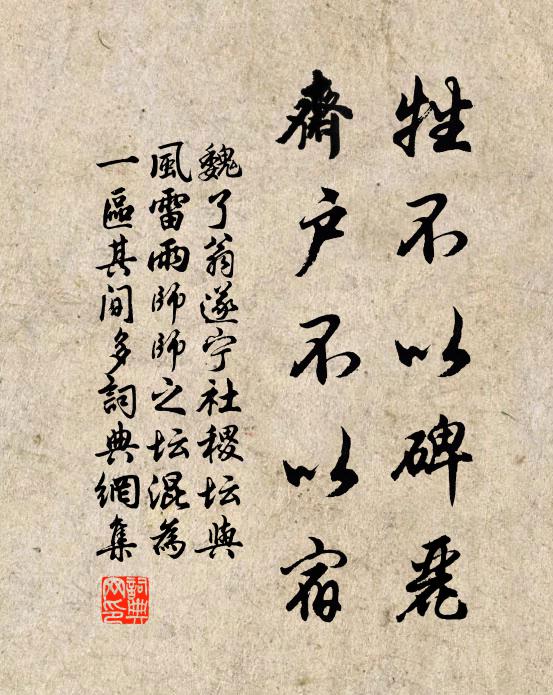 牲不以碑麗
齊户不以宿
魏了翁遂宁社稷坛與
風雷雨師師之坛混為
一區其间多詞典網集
詞典网印